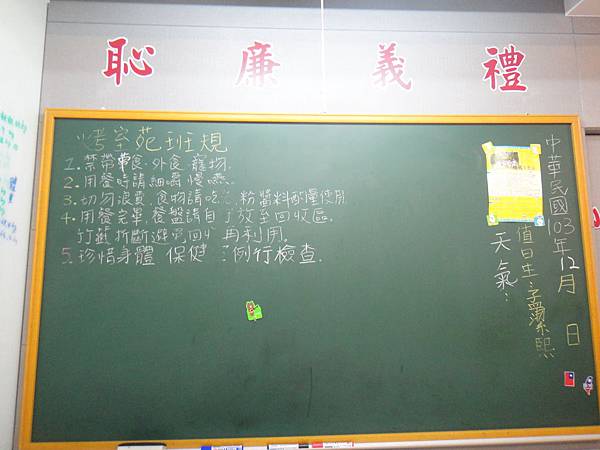 禮義廉恥
烤字苑班規
1.禁帶 食.外食 寵物.
2.用餐時請細嚼慢嚥.
3.切勿浪費.食物請吃 .粉醬料酌量使用
4.用餐完畢.餐盤請自 放至回收區.
竹籤折斷避免回 再利用.
5.珍惜身體 保健 例行檢查.
中華民國103年12月 日
值日生:孟潔熙
天氣: